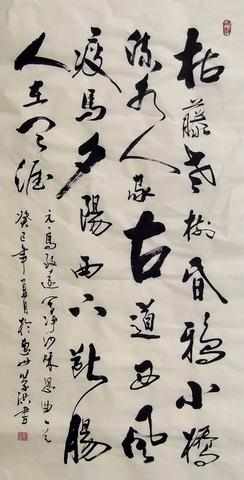 枯藤老樹昏鴉小橋
流水人家古道西風
瘦馬夕陽西下斷腸
人在天涯
元馬致遠天净沙秋思曲一
癸巳年夏月於書